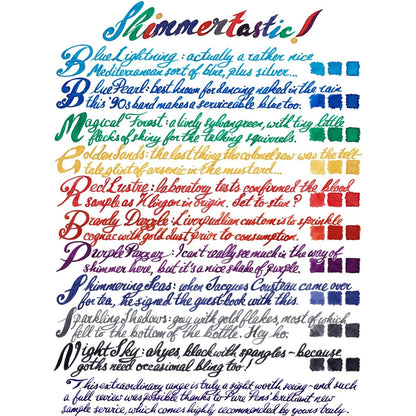 Shimmertastic!
Blue Lightning: actually a rather nice
Mediterranean sort of blue, plus silver...
Blue Pearl: best known for dancing naked in the rain
this '90s band makes a serviceable blue too.
Magical Forest: a lively sylvan green, with tiny little
flecks of shiny for the talking squirrels.
Golden Sands: the last thing the colonel saw was the tell-
tale glint of arsenic in the mustard...
Red Lustre: laboratory tests confirmed the blood
sample as Klingon in origin. Set to stun?
Brandy Dazzle: Liverpudlian custom is to sprinkle
cognac with gold dust prior to consumption.
Purple Pazzazz: I can't really see much in the way of
shimmer here, but it's a nice shade of purple.
Shimmering Seas: when Jacques Cousteau came over
for tea, he signed the guest book with this.
Sparkling Shadows: grey with gold flakes, most of which
fell to the bottom of the bottle. Hey ho.
Night Sky: ah yes, black with spangles - because
goths need occasional bling too!
This extraordinary range is truly a sight worth seeing - and such
a full review was possible thanks to Pure Pens' brilliant new
sample service, which comes highly recommended by yours truly.